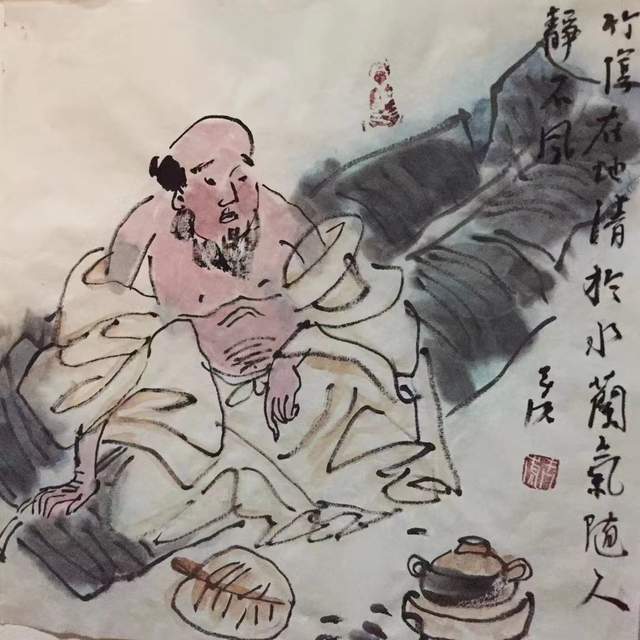 竹陰在地清於水蘭氣隨人
靜不風